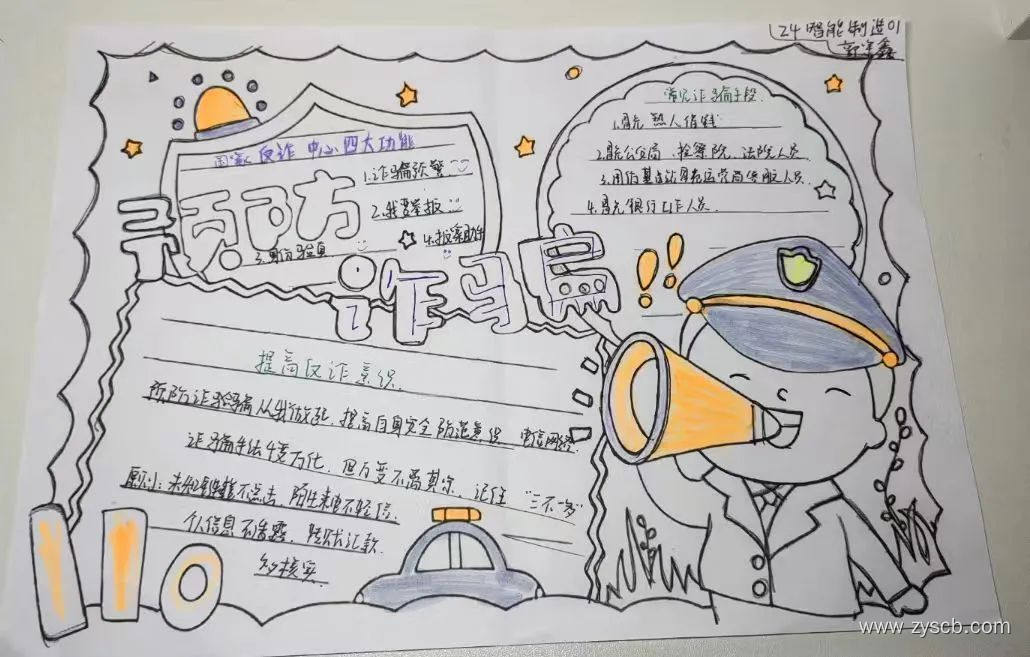 24智能制造01
国家反诈中心四大功能
1.诈骗预警
2.我要举报
3.身份验真
4.报案助手
预防
诈骗
常见诈骗手段
1.冒充熟人借钱
2.冒充公安局、检察院、法院人员
3.用伪基站冒充运营商客服人员
4.冒充银行工作人员
!!
提高反诈意识
预防诈骗从我做起,提高自身安全防范意识 电信网络
诈骗手法千变万化,但万变不离其宗,记住"三不一多"
原则:未知链接不点击,陌生来电不轻信
个人信息不泄露,转账汇款
多核实
110
www.zyscb.com